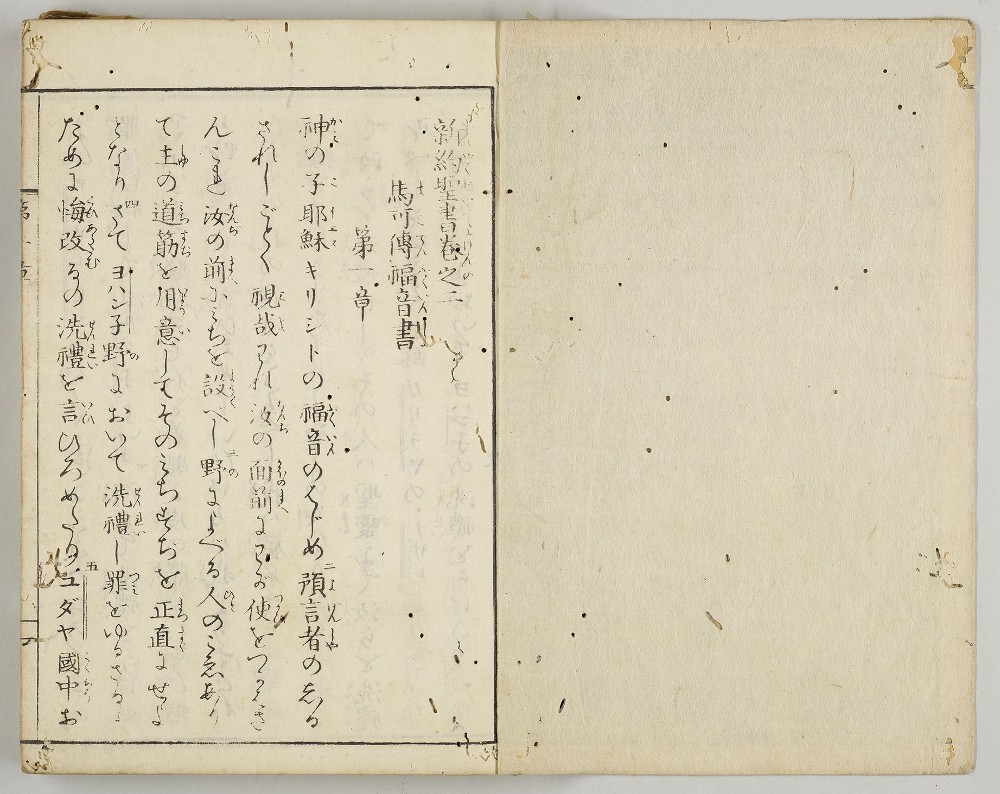 新約聖書卷之二
馬可傳福音書
第一章
神の子耶穌キリシトの福音のはじめ二預言者のしる
されしごとく視哉われ汝の面前にわが使をつかはさ
んこれ汝の前にみちを設べし三野によべる人のこゑあり
て主の道筋を用意してそのみちすぢを正直にせよ
となり四さてヨハン子野において洗禮し罪をゆるさるゝ
ために悔改るの洗禮を言ひろめたり五ユダヤ國中お